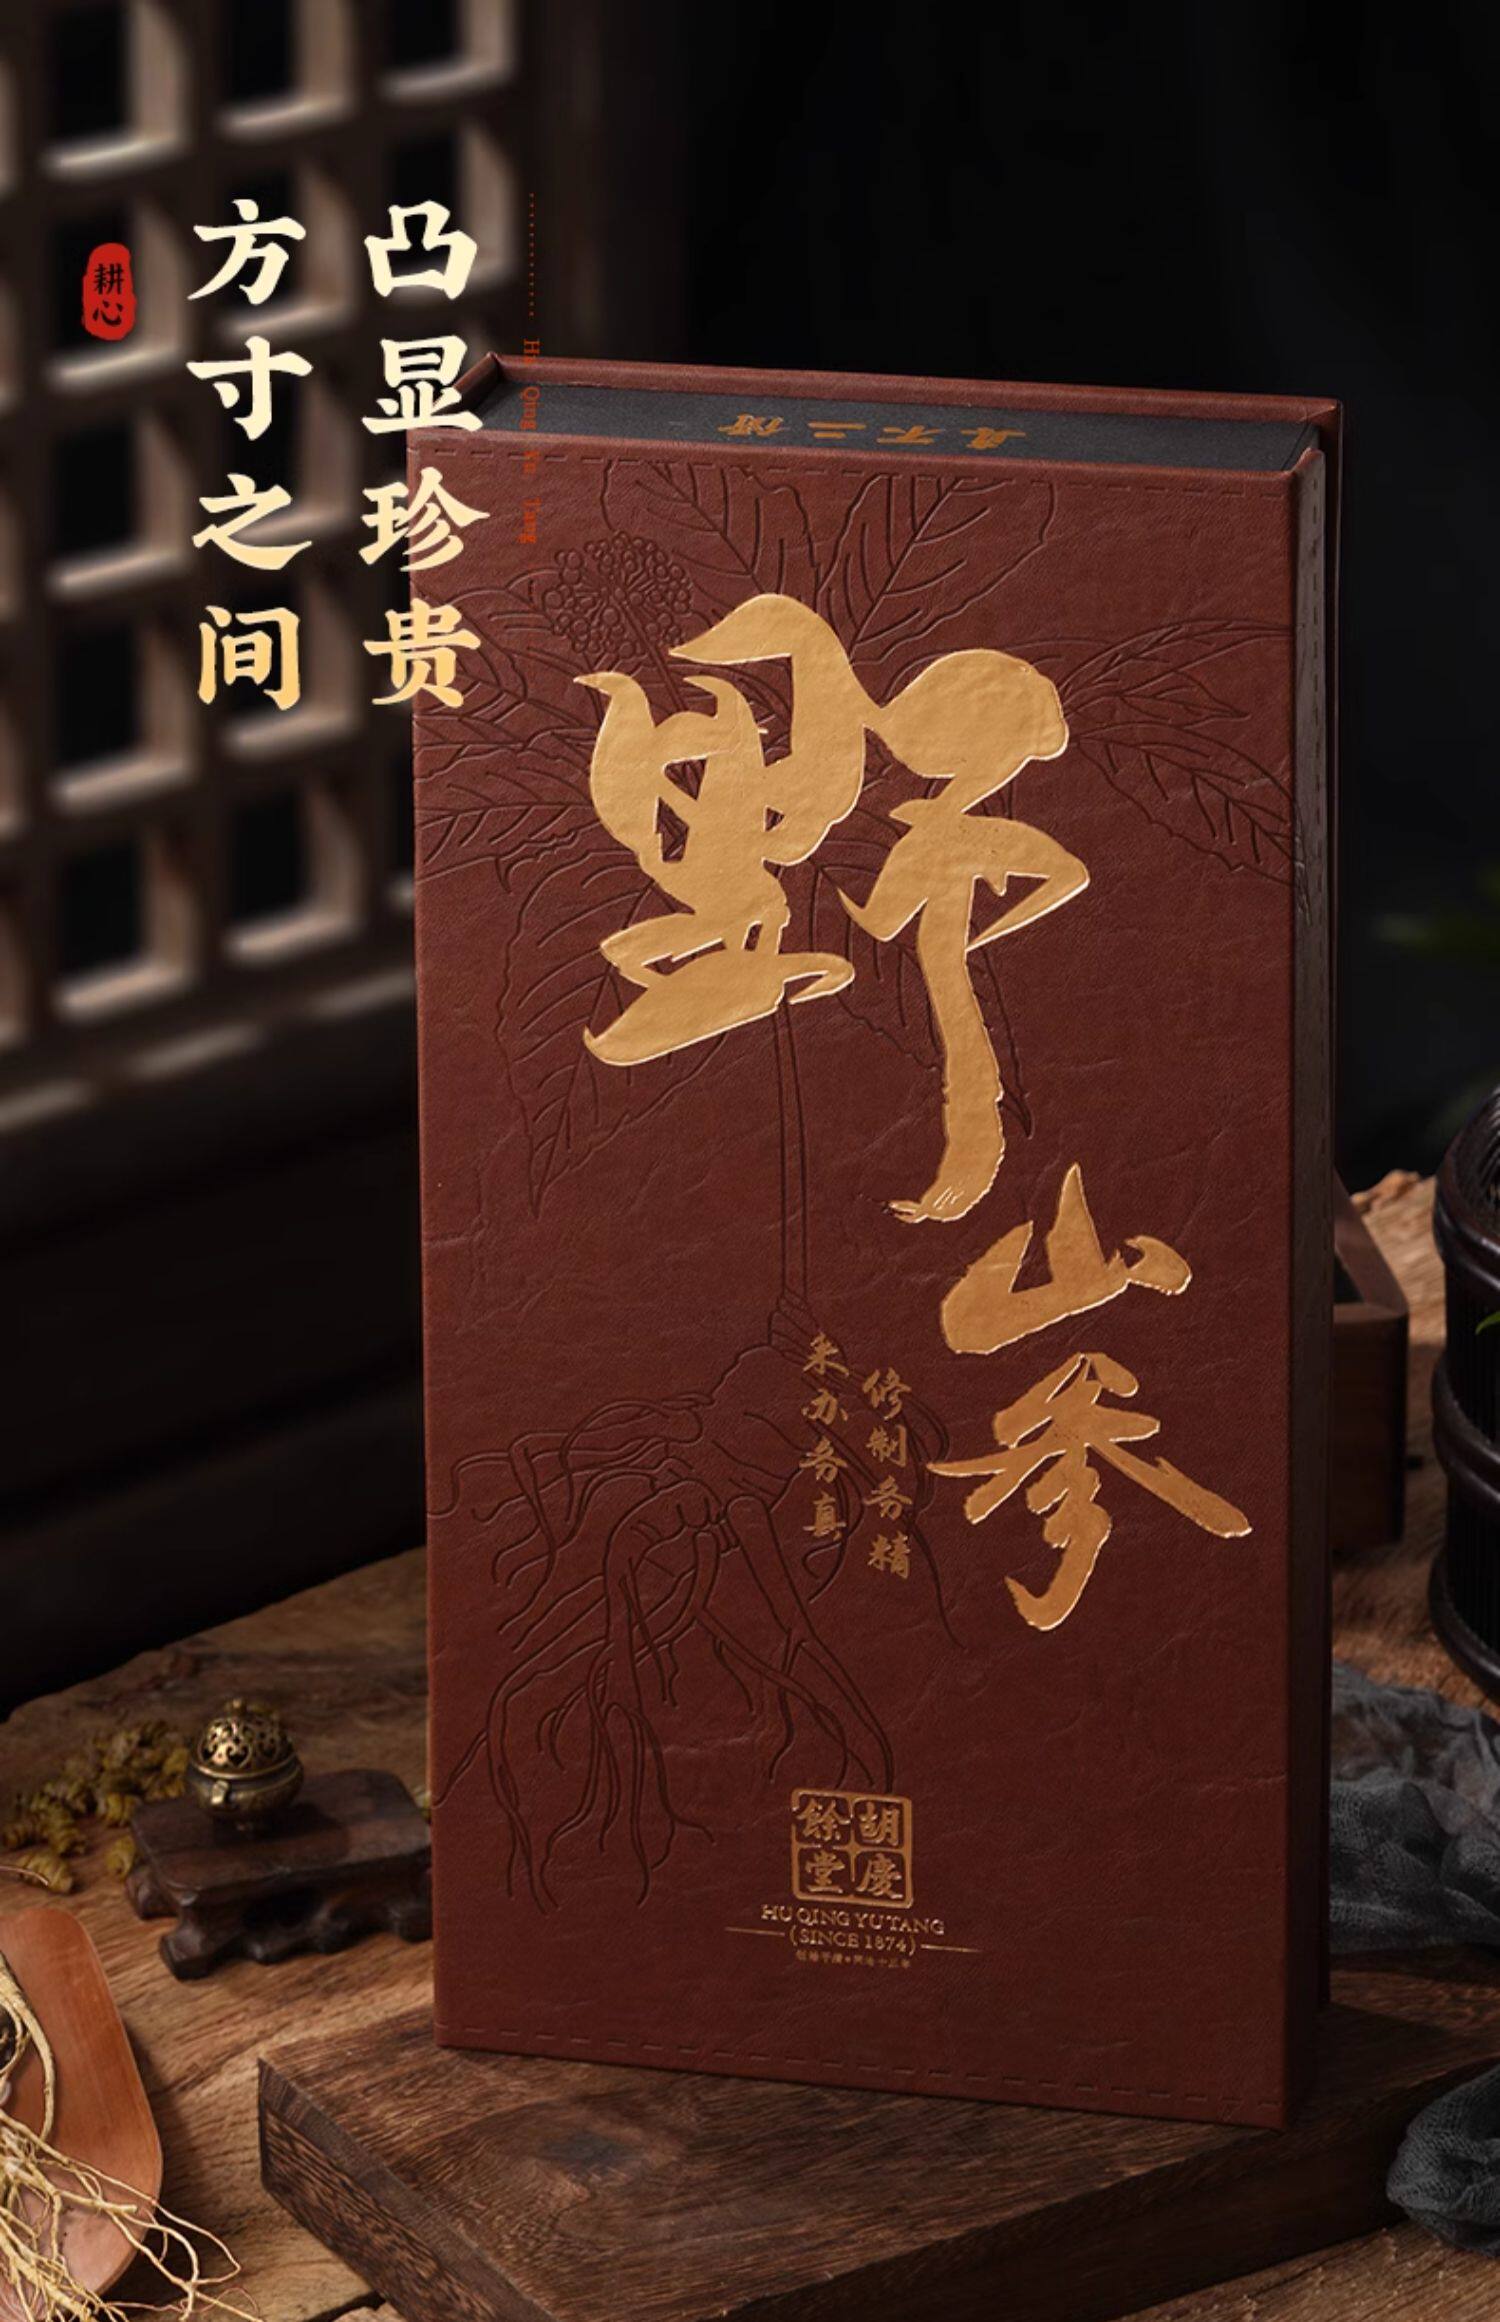 方寸之间
凸显珍贵
耕心
Hu Qing Yu Tang
真不二价
野山参
采办务真
修制务精
胡慶餘堂
HU QING YU TANG
(SINCE 1874)